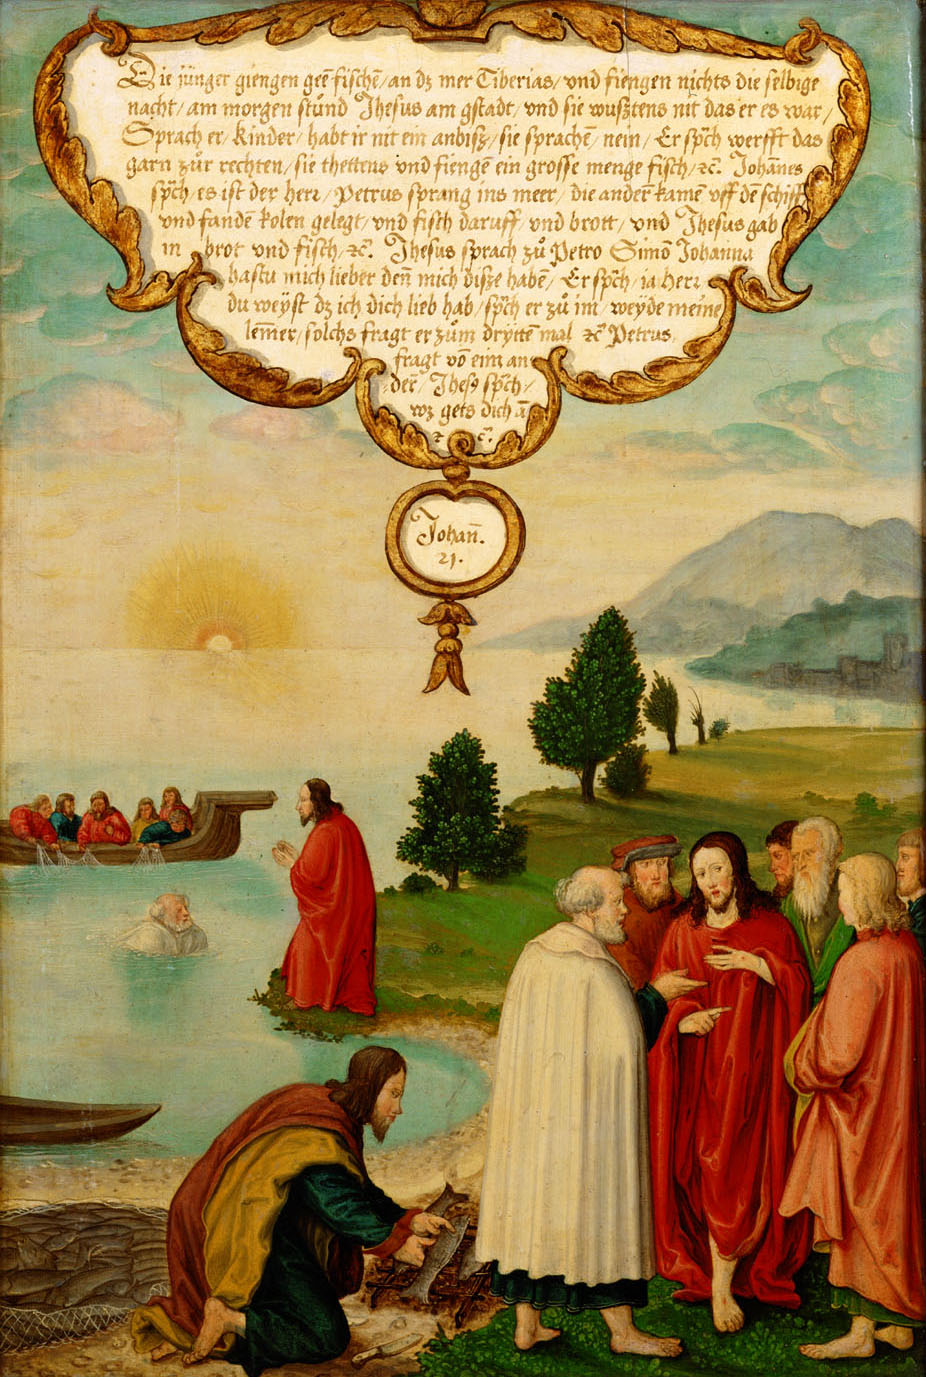 Die jünger giengen geē fischē/an dz mer Tiberias/vnd fiengen nichts die selbige
nacht/am morgen stůnd Jhesus am gstadt/vnd sie wusztens nit das er es war/
Sprach er/Kinder/habt ir nit ein anbisz/sie sprachē/nein/Er sp̄ch werfft das
garn zůr rechten/sie thettens vnd fiengē ein grosse menge fisch/ꝛc. Johānes
sp̄ch/es ist der herr/Petrus sprang ins meer/die anderē kamē vff dē schiff/
vnd fandē kolen gelegt/vnd fisch daruff/vnd brott/vnd Jhesus gab
in brot vnd fisch/ꝛc. Jhesus sprach zů Petro Simō Johanna
hastu mich lieber deñ mich disze habē/Er sp̄ch/ia herr/
du weÿst dz ich dich lieb hab/sp̄ch er zů im/weyde meine
lem̄er/solchs fragt er zům drÿttē mal ꝛc Petrus
fragt vō eim an
der/Jhesꝰ sp̄ch/
wz gets dich ā
ꝛc.
Johañ.
21.